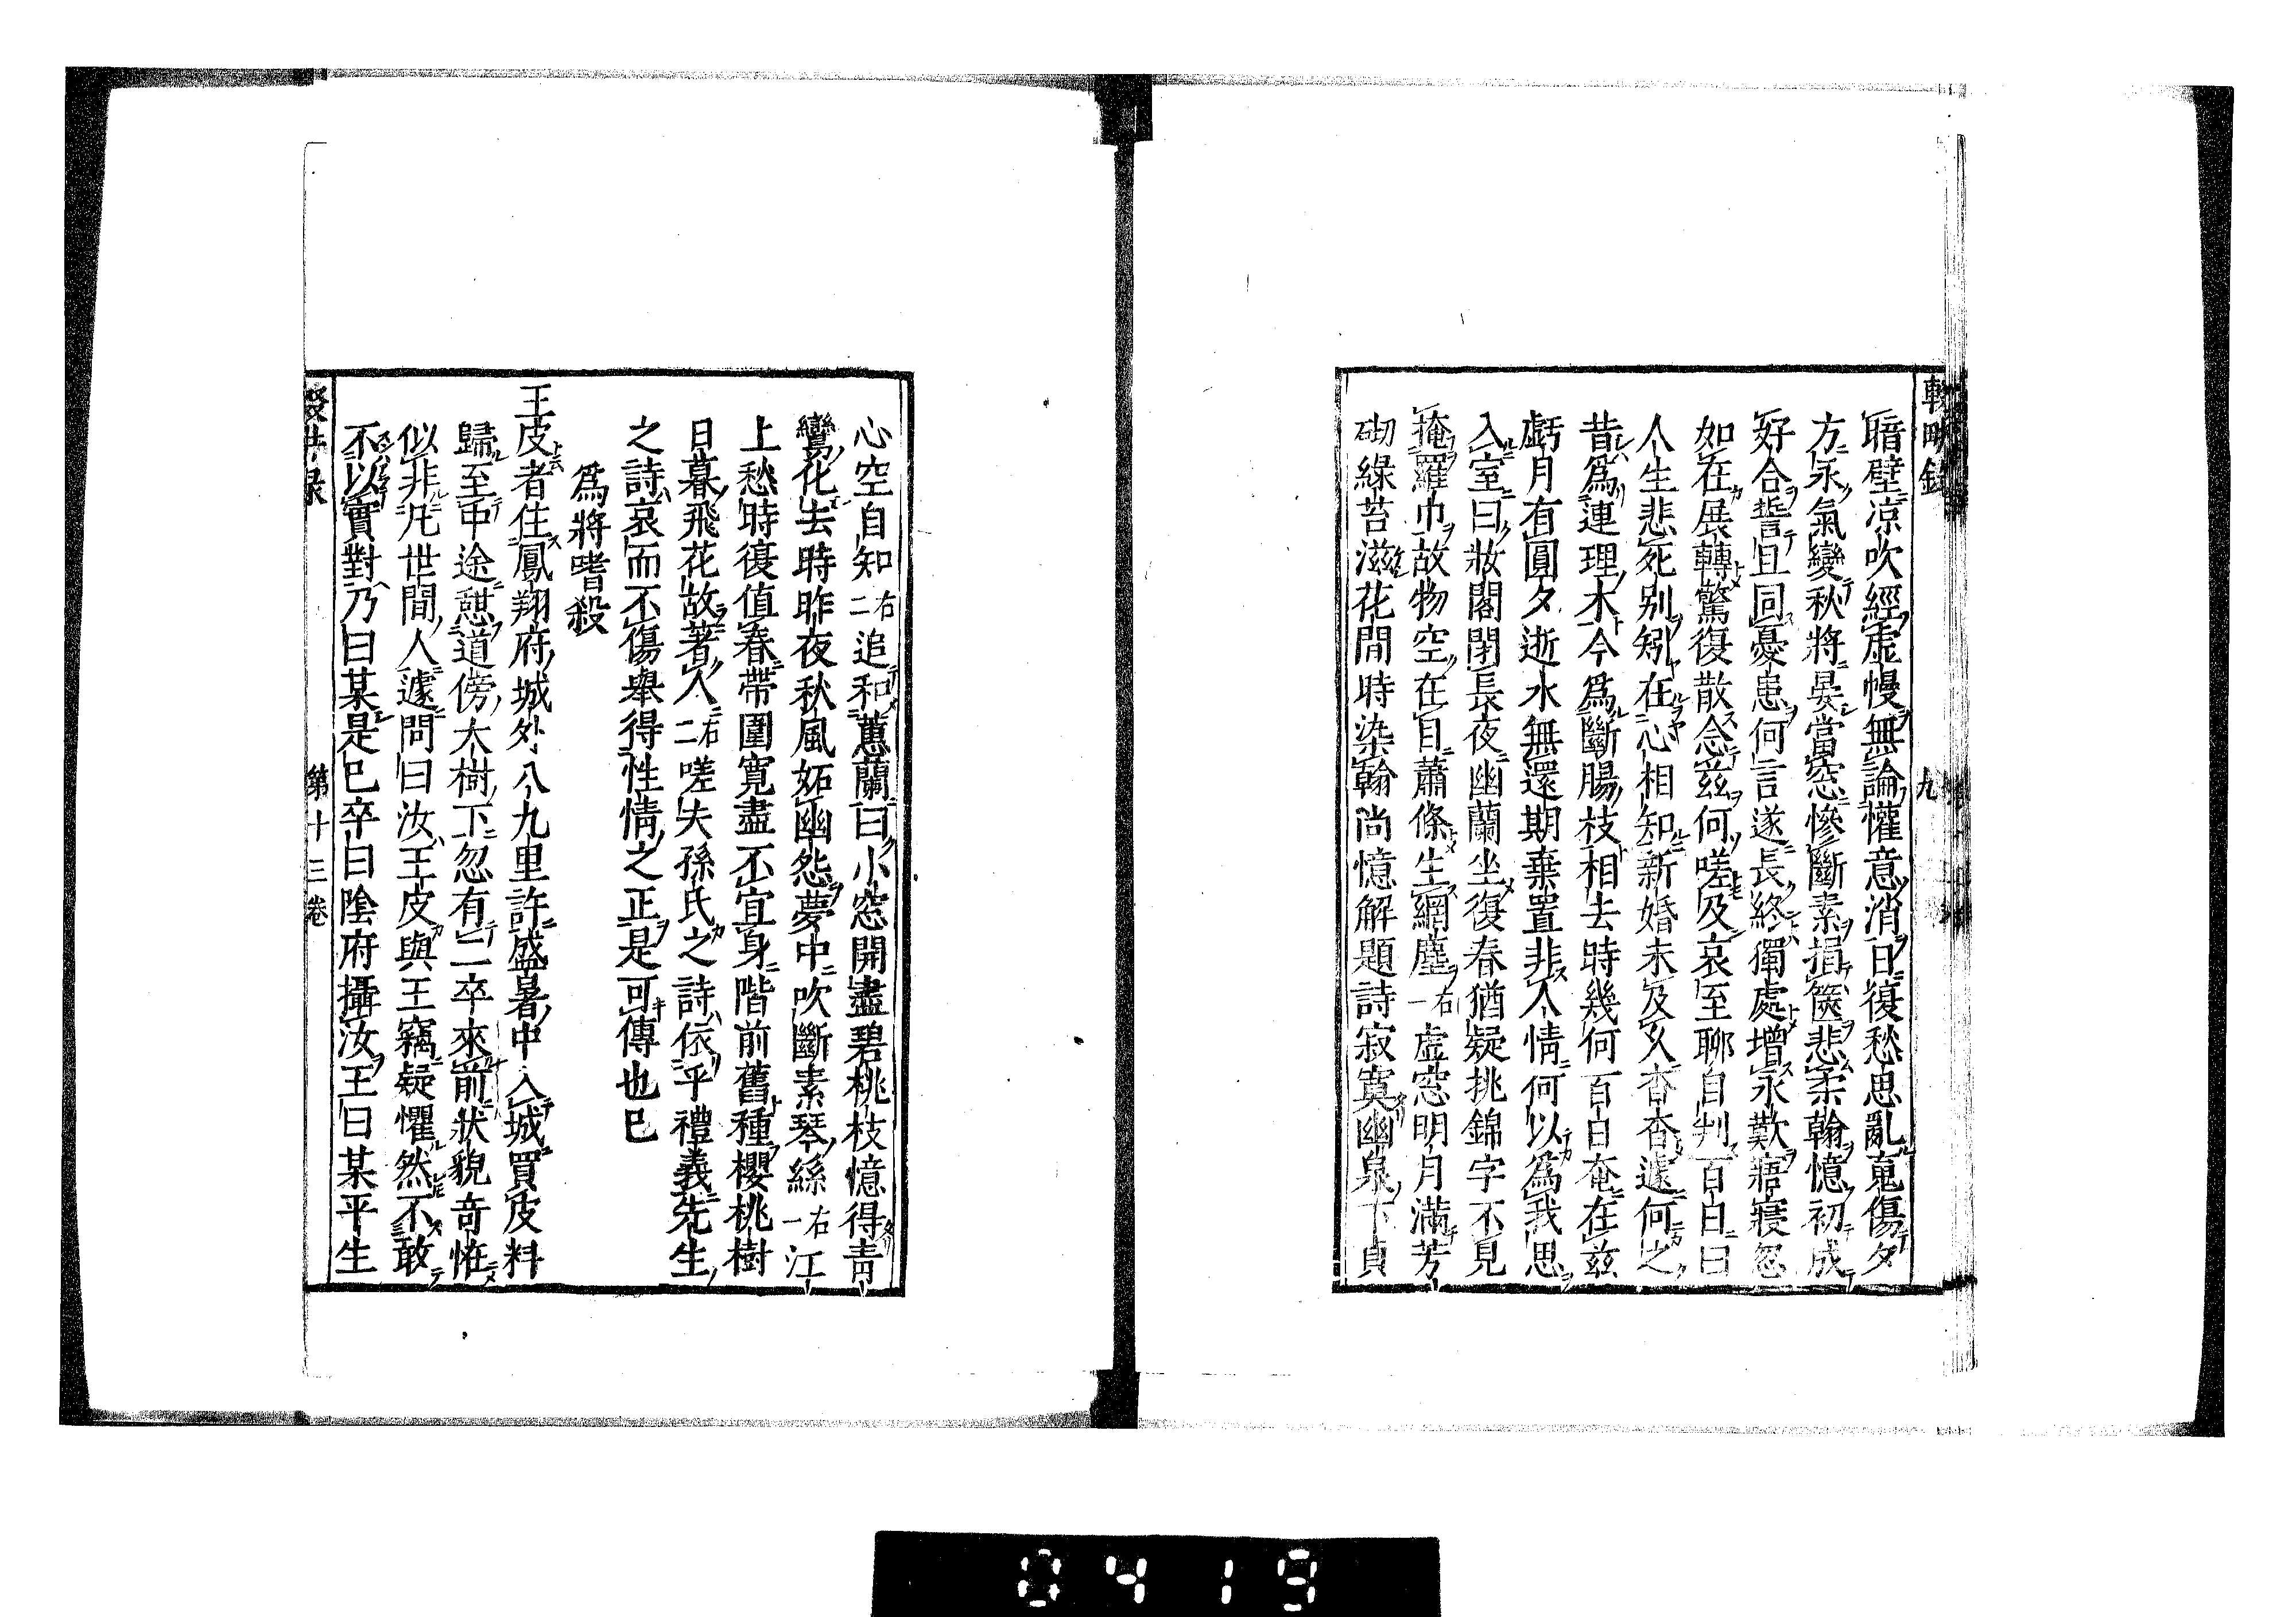 輟畊錄
九
暗壁凉吹經虛幔無論懽意消日復愁思亂䰟傷夕
方永氣變秋將晏當窓慘斷素損篋悲柔翰憶初成
好合誓且同憂患何言遂長終獨處增永歎寤寢忽
如在展轉驚復散念兹何嗟及哀至聊自判百白曰
人生悲死别矧在心相知新婚未及久杳杳遽何之
昔爲連理木今爲斷腸枝相去時幾何百白奄在兹
虧月有圓夕逝水無還期棄置非人情何以爲我思
入室曰妝閣閉長夜幽蘭坐復春猶疑挑錦字不見
掩羅巾故物空在目蕭條生網塵右一虛窓明月滿芳
砌緑苔滋花間時染翰尚憶解題詩寂寞幽泉下貞
心空自知右二追和蕙蘭曰小窓開盡碧桃枝憶得青
鸞化去時昨夜秋風妬幽怨夢中吹斷素琴絲右一江
上愁時復值春帶圍寬盡不宜身階前舊種櫻桃樹
日暮飛花故著人右二嗟夫孫氏之詩依乎禮義先生
之詩哀而不傷舉得性情之正是可傳也已
爲將嗜殺
王皮者住鳳翔府城外八九里許盛暑中入城買皮料
歸至中途憇道傍大樹下忽有二卒來前狀貌奇恠
似非凡世間人遽問曰汝王皮與王竊疑懼然不敢
不以實對乃曰某是已卒曰隂府攝汝王曰某平生
第十三卷